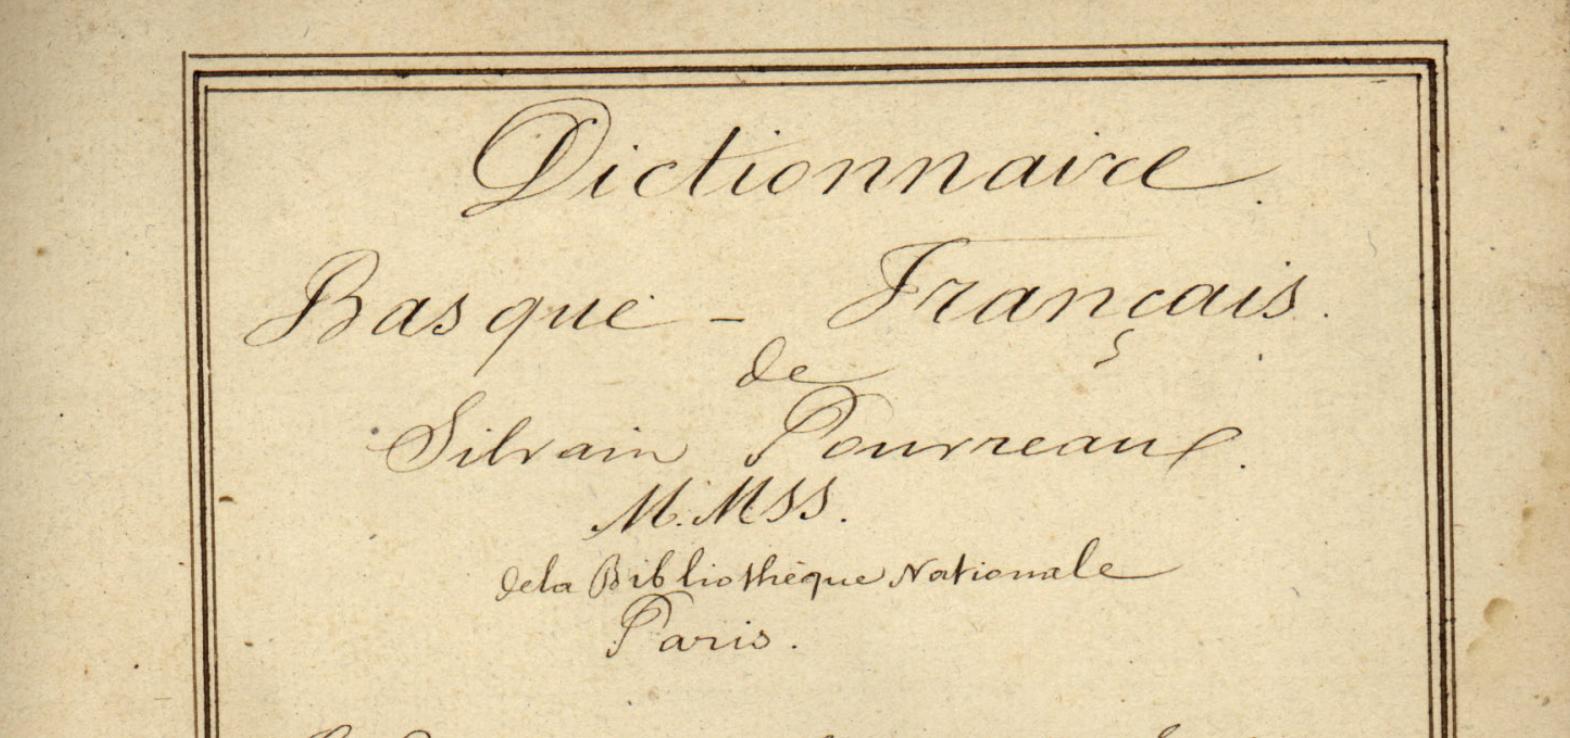 Dictionnaire
Basque - Français.
de
Silvain Pourreau.
M. MSS.
de la Bibliothèque Nationale
Paris.